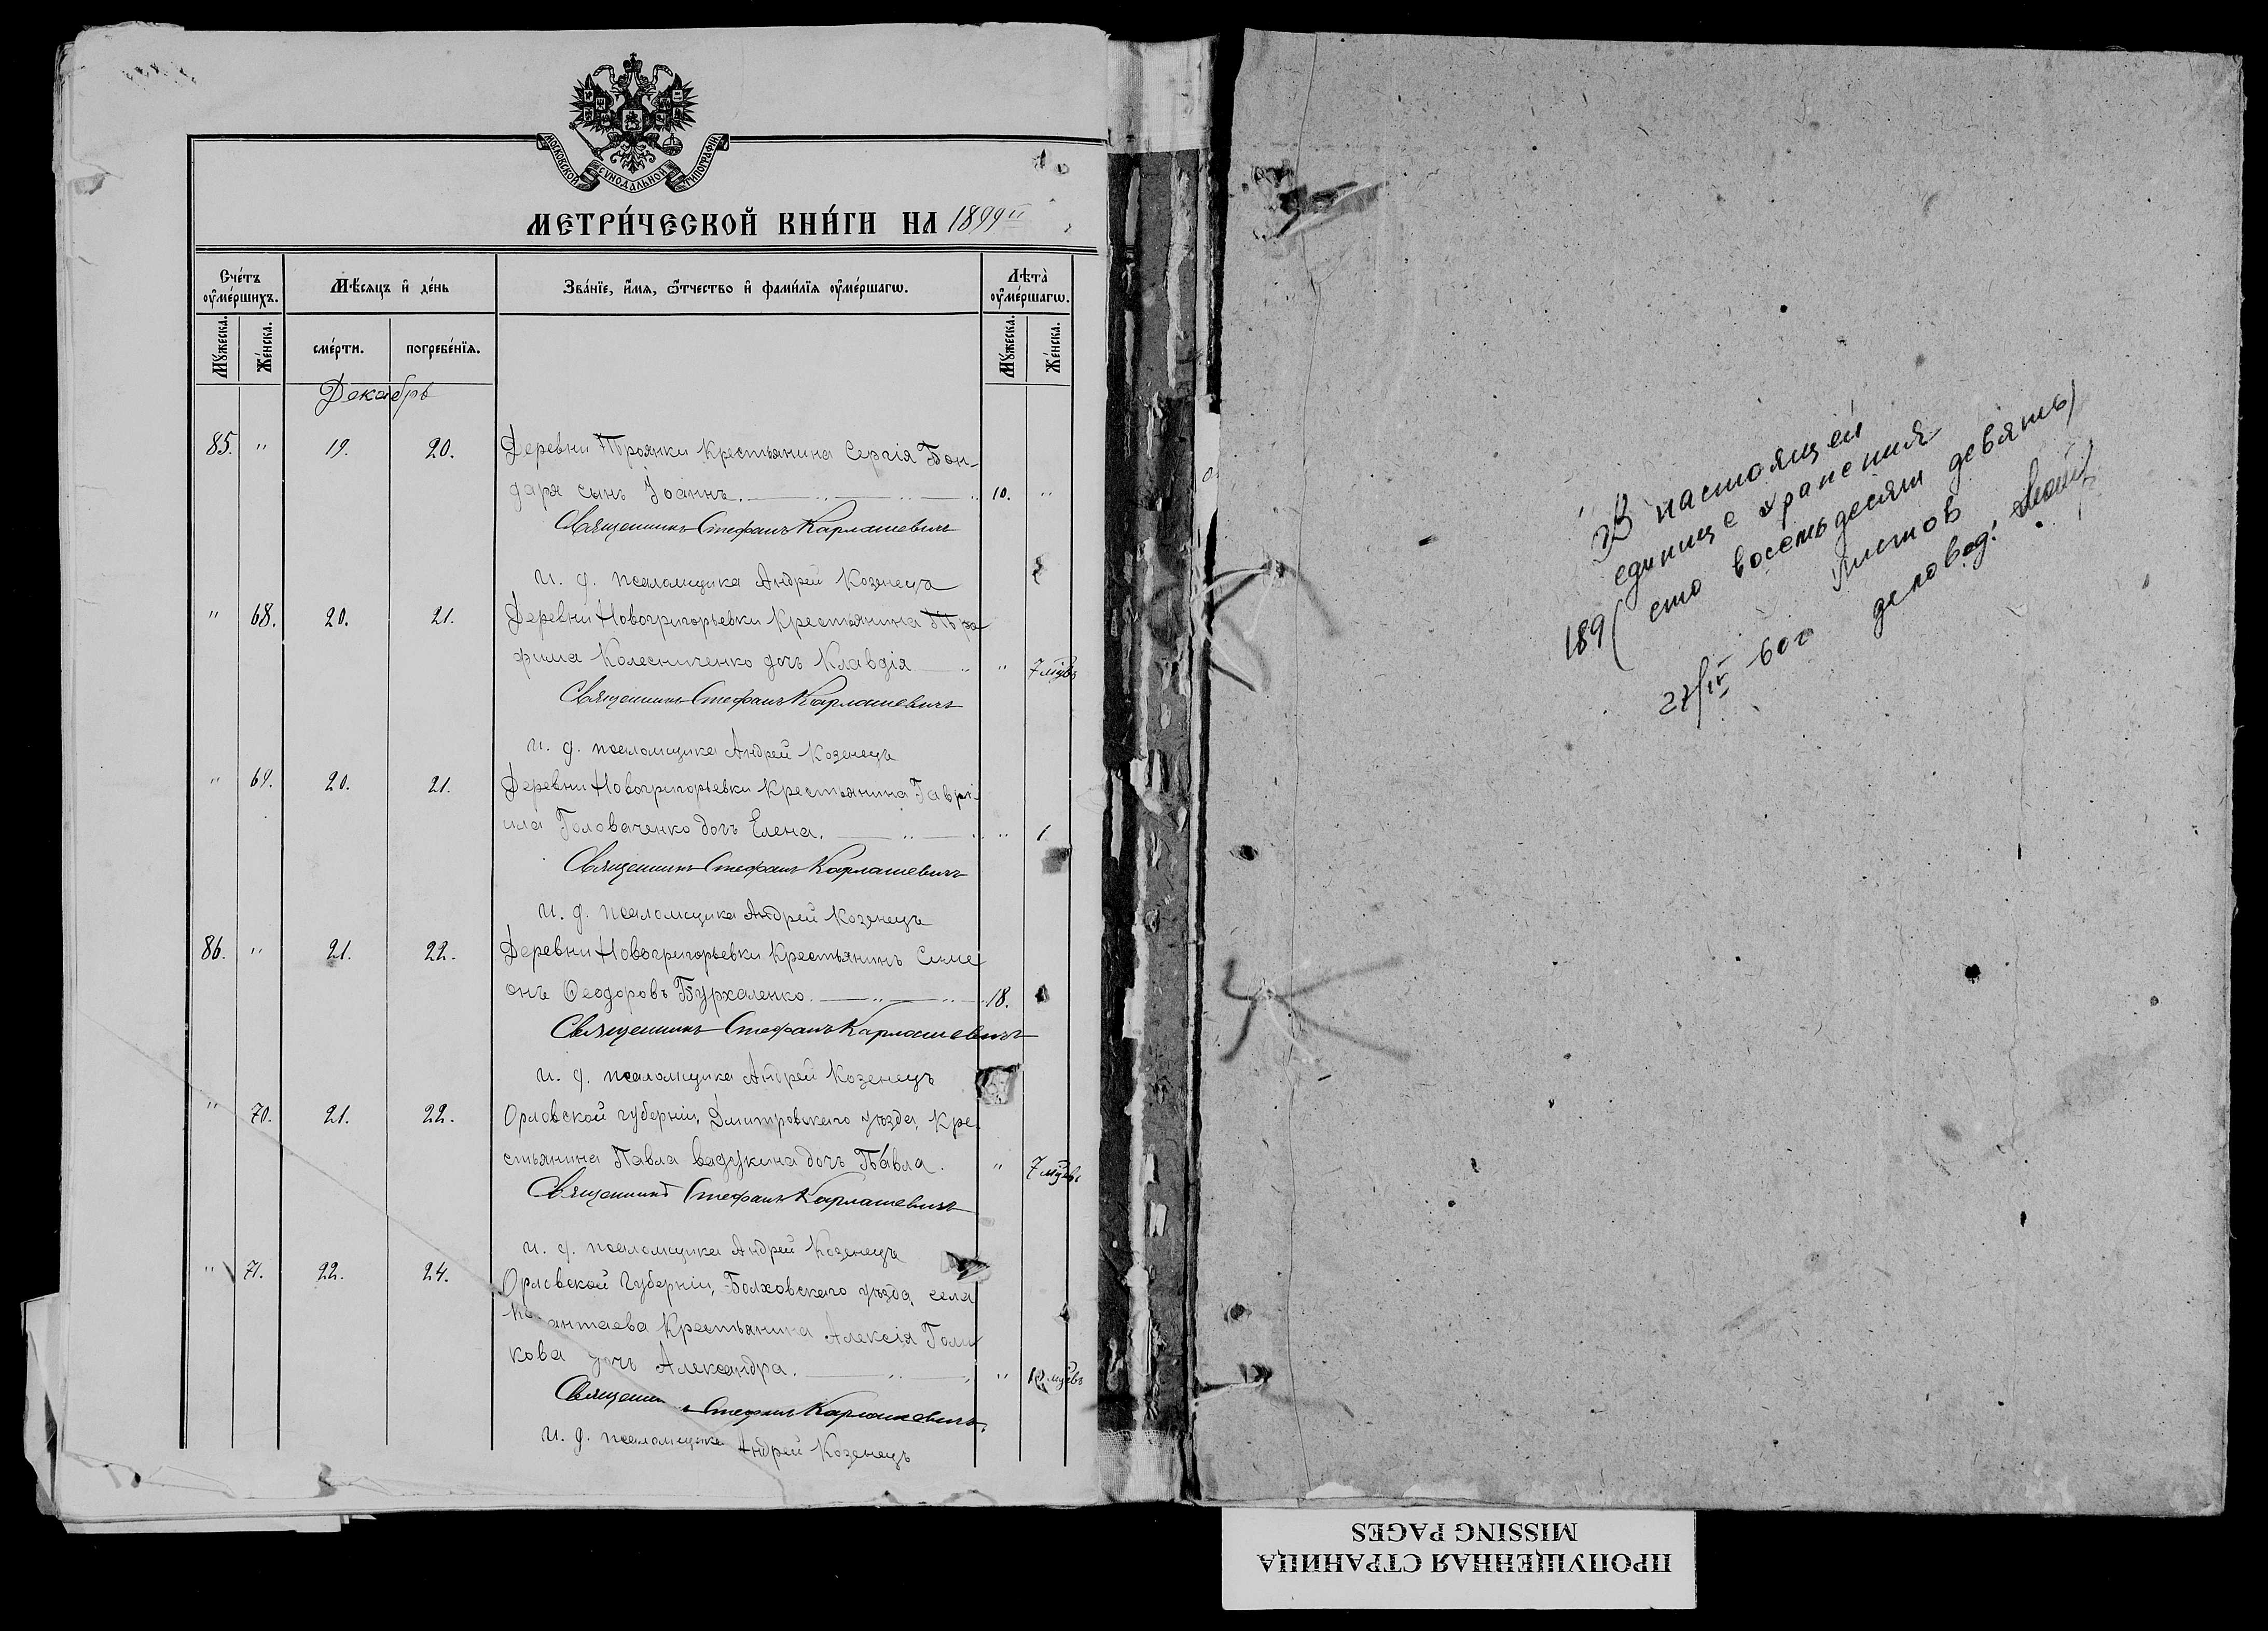 МОСКОВСКОЙ СѴНОДАЛЬНОЙ ТИПОГРАФІИ.
МЕТРИ́ЧЕСКОЙ КНИ́ГИ НА 1899
Сче́тъ ᲂу҆ме́ршихъ.
Мѣ́сяцъ и҆ де́нь
Зва́нїе, и҆́мя, ѻ҆́тчество и҆ фами́лїя ᲂу҆ме́ршагѡ.
Лѣта̀ ᲂу҆ме́ршагѡ.
Мꙋ́жеска. Же́нска. сме́рти. погребе́нїя. Мꙋ́жеска. Же́нска.
Декабрь
85. " 19. 20. Деревни Троянки Крестьянина Сергія Бон-
даря сынъ Іоаннъ. 10. "
Священникъ Стефанъ Карлашевичъ
И. д. псаломщика Андрей Козенецъ
" 68. 20. 21. Деревни Новогригорьевки Крестьянина Тро
фима Колесниченко дочь Клавдія " 7 мцвъ
Священникъ Стефанъ Карлашевичъ
И. д. псаломщика Андрей Козенецъ
" 69. 20. 21. Деревни Новогригорьевки Крестьянина Гаврі-
ила Головаченко дочь Елена. " 1
Священникъ Стефанъ Карлашевичъ
И. д. псаломщика Андрей Козенецъ
86. " 21. 22. Деревни Новогригорьевки Крестьянинъ Симе
онъ Ѳеодоровъ Бурхаленко. 18.
Священникъ Стефанъ Карлашевичъ
И. д. псаломщика Андрей Козенецъ
" 70. 21. 22. Орловской губерніи, Дмитровскаго уѣзда, Кре-
стьянина Павла дочь Павла. " 7 мцвъ
Священникъ Стефанъ Карлашевичъ
И. д. псаломщика Андрей Козенецъ
" 71. 22. 24. Орловской Губерніи, Болховскаго уѣзда, села
Крестьянина Алексія Голи
кова дочь Александра. " мцвъ
Священникъ Стефанъ Карлашевичъ
И. д. псаломщика Андрей Козенецъ
В настоящей
единице хранения
189 (сто восемьдесят девять)
листов
27/IV 60г деловод.
ПРОПУЩЕННАЯ СТРАНИЦА
MISSING PAGES